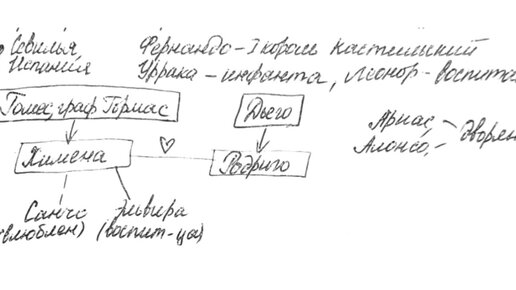 Севилья, Фернандо - I король Кастильский
Испания Уррака - инфанта, Леонор - воспита
Гомес, граф Гормас Диего
Ариас
Алонсо, - дворян
Химена Родриго
Санчо Эльвира
влюблен) (воспит-ца)